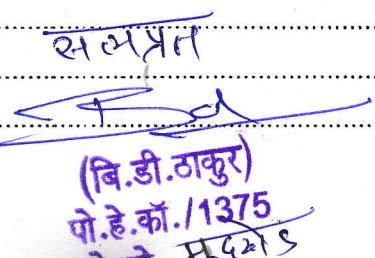 सत्यप्रत
(बि.डी.ठाकुर)
पो.हे.कॉ./1375